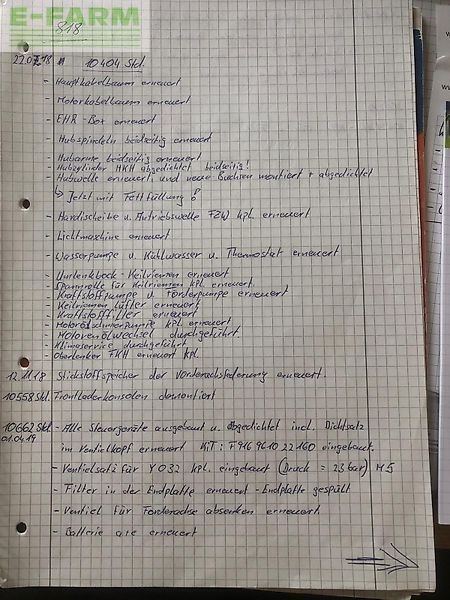 E-FARM
818
22.07.18 10404 Std.
- Hauptkabelbaum erneuert
- Motorkabelbaum erneuert
- EHR-Box erneuert
- Hubspindeln beidseitig erneuert
- Hubarme beidseitig erneuert
- Hubzylinder HKH abgedichtet beidseitig!
- Hubwelle erneuert, und neue Buchsen montiert + abgedichtet
↳ Jetzt mit Fettfüllung!
- Hardischeibe u. Antriebswelle FZW kpl. erneuert
- Lichtmaschine erneuert
- Wasserpumpe u Kühlwasser u. Thermostat erneuert
- Umlenkbock-Keilriemen erneuert
- Spannrolle für Keilriemen kpl. erneuert
- Kraftstoffpumpe u Förderpumpe erneuert
- Keilriemen Lüfter erneuert
- Kraftstofffilter erneuert
- kpl. erneuert
- Motorenölwechsel durchgeführt.
- Klimaservice durchgeführt
- Oberlenker FKH erneuert kpl.
12.11.18 Stickstoffspeicher der Vorderachsfederung erneuert.
10558 Std. Frontladerkonsolen demontiert
10662 Std. - Alle Steuergeräte ausgebaut u. abgedichtet incl. Dichtsatz
01.04.19 im Ventilkopf erneuert KiT: F916 9610 22 160 eingebaut.
- Ventielsatz für Y032 kpl. eingebaut (Druck = 23 bar) M5
- Filter in der Endplatte erneuert - Endplatte gespült
- Ventiel für absenken erneuert.
- Batterie erneuert